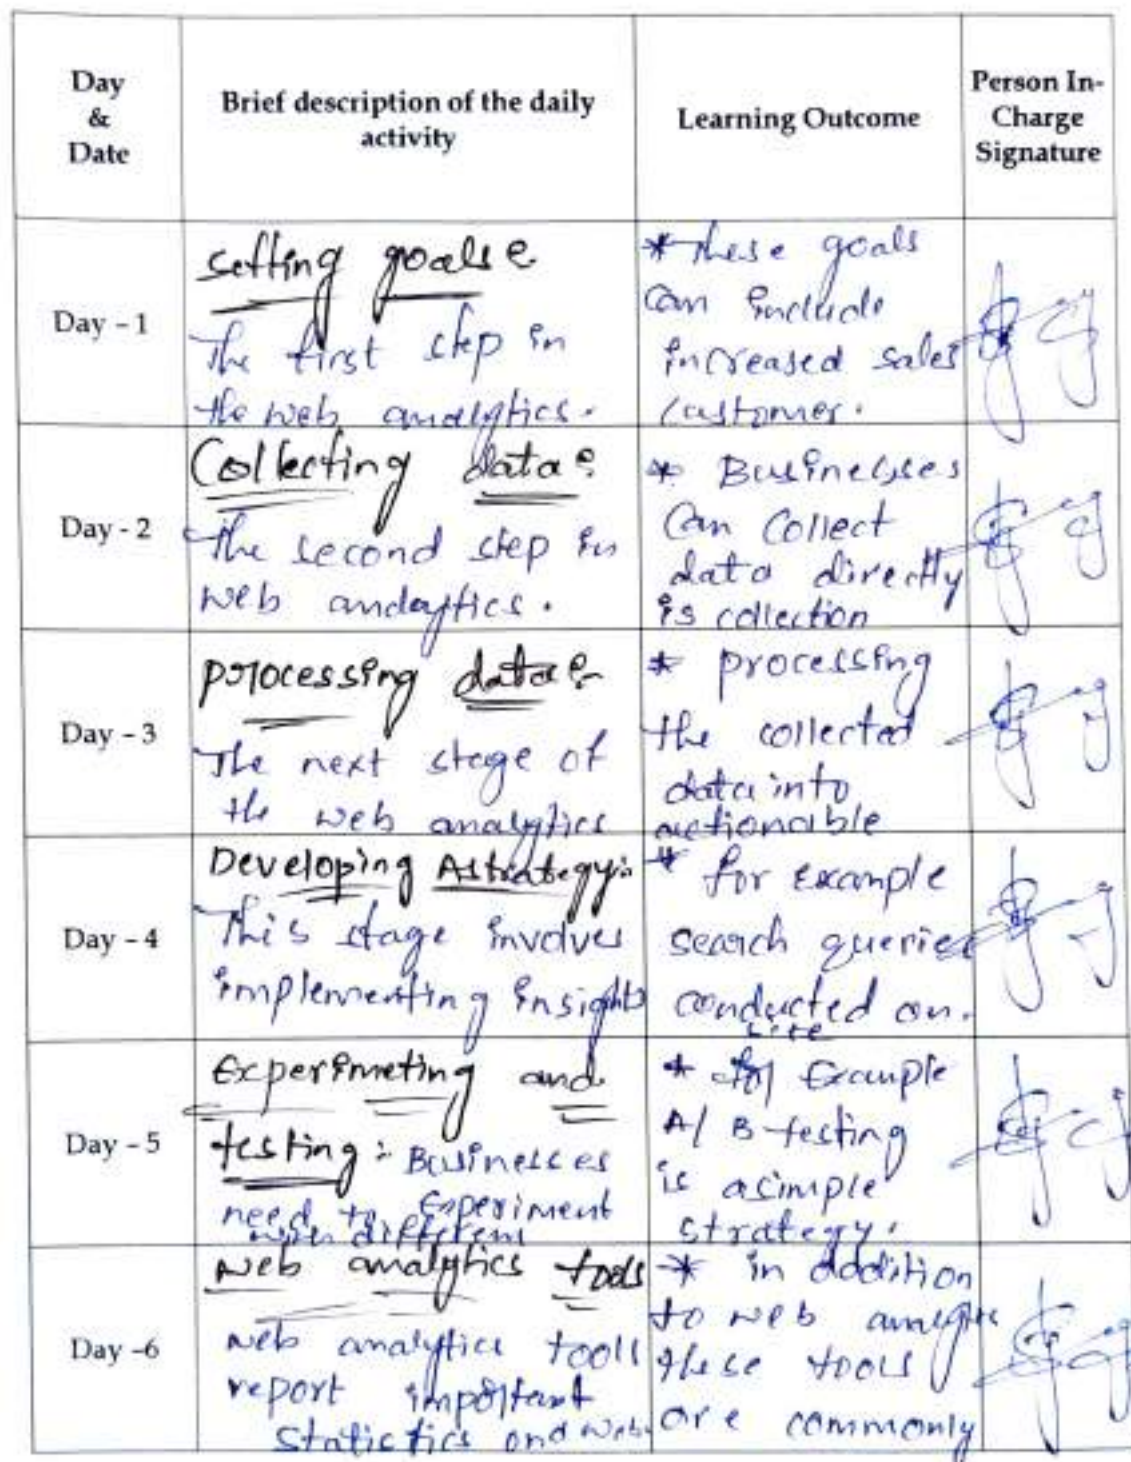 Day
&
Date
Brief description of the daily
activity
Learning Outcome
Person In-
Charge
Signature
Day - 1
Setting goals :
The first step in
the web analytics.
* These goals
can include
increased sales
customer.
Day - 2
Collecting data :
The second step in
web andaytics.
* Businesses
can collect
data directly
is collection
Day - 3
processing data :-
The next stage of
the web analytics
* processing
the collected
data into
actionable
Day - 4
Developing Astrategy:
This stage involves
implementing insights
* for example
search queries
conducted on.
site
Day - 5
Experimeting and
testing : Businesses
need to experiment
with different
* for Example
A/ B testing
is a simple
strategy.
Day -6
web analytics tools
web analytics tools
report important
Statictics and web.
* in addition
to web analytics
these tools
are commonly